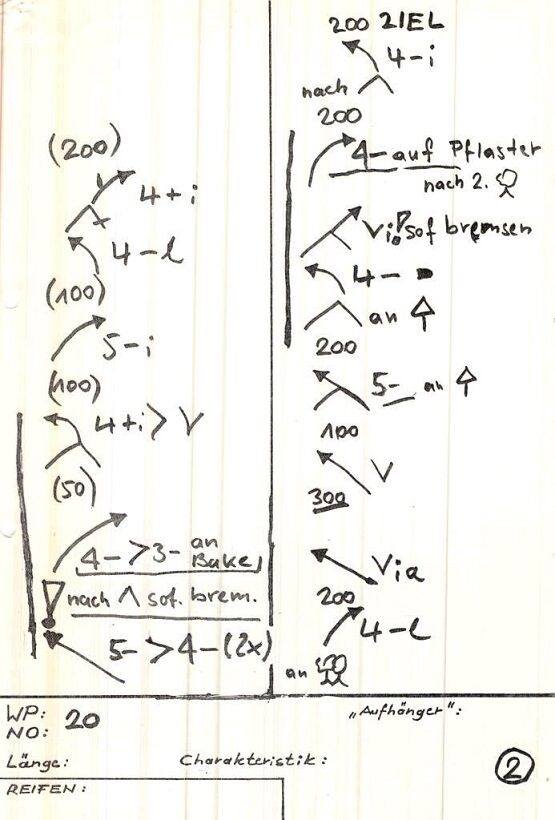 (200)
4+i
4-l
(100)
5-i
(100)
4+i> V
(50)
4- >3- an
Bake
! nach ∧ sof. brem.
5- >4-(2x)
200 ZIEL
4-i
nach
200
4- auf Pflaster
nach 2.
Vi! sof bremsen
4-
an
200
5- an
100
V
300
Via
200
4-l
an
WP: 20
NO:
"Aufhänger":
Länge:
Charakteristik:
2
REIFEN: